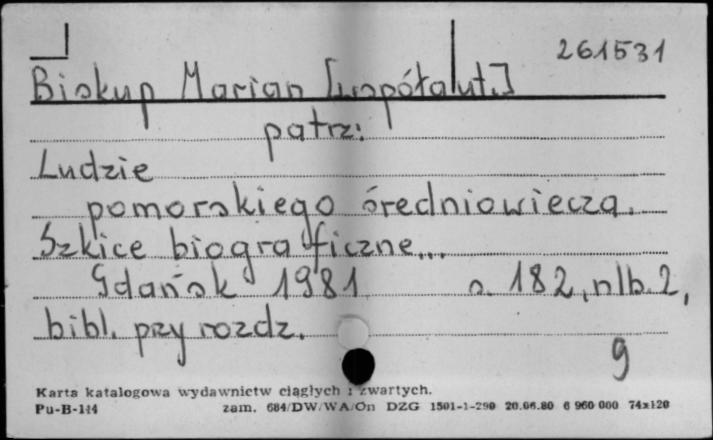 261531
Biskup Marian [współaut.]
patrz:
Ludzie
pomorskiego średniowiecza.
Szkice biograficzne...
Gdańsk 1981 s. 182, nlb. 2,
bibl. przy rozdz.
g
Karta katalogowa wydawnictw ciągłych i zwartych.
Pu-B-114 zam. 684/DW/WA/On DZG 1501-1-290 20.06.80 6 960 000 74x120